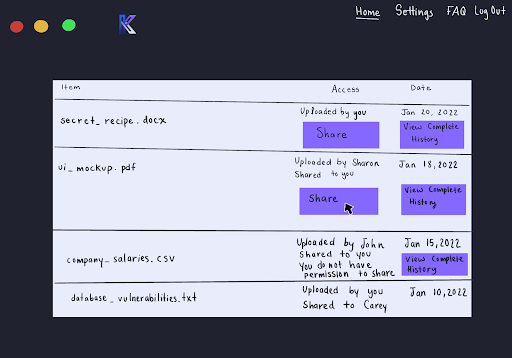 Home Settings FAQ Log Out
Item Access Date
secret_recipe.docx
Uploaded by you
Share
Jan 20, 2022
View Complete
History
ui_mockup.pdf
Uploaded by Sharon
Shared to you
Share
Jan 18, 2022
View Complete
History
company_salaries.csv
Uploaded by John
Shared to you
You do not have
permission to share
Jan 15, 2022
View Complete
History
database_vulnerabilities.txt
Uploaded by you
Shared to Carey
Jan 10, 2022